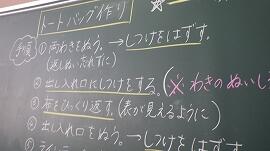 トートバッグ作り
手順
①両わきをぬう。→しつけをはずす。
(返しぬいたれずに)
②出し入れ口にしつけをする。(※わきのぬいし
③布をひっくり返す。(表が見えるように)
④出し入れ口をぬう。→しつけをはずす